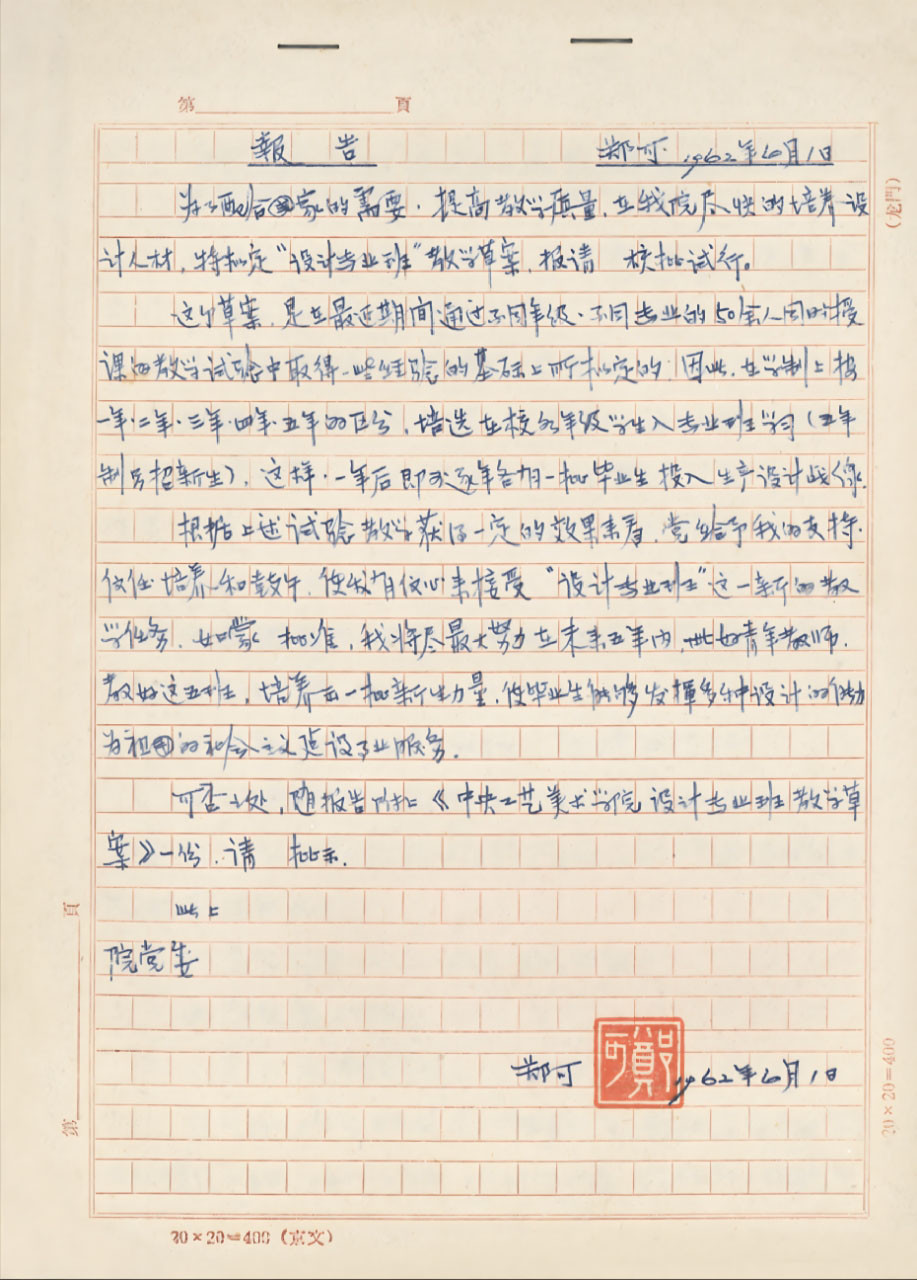 第 頁
報 告 郑可 1962年6月1日
为了配合国家的需要，提高教学质量，在我院尽快的培养设
计人材，特拟定“设计专业班”教学草案，报请 核批试行。
这个草案，是在最近期间通过不同年级、不同专业的50余人同时授
课的教学试验中取得一些经验的基础上所拟定的，因此，在学制上按
一年、二年、三年、四年、五年的区分，培选在校各年级学生入专业班学习（五年
制另招新生），这样，一年后即可逐年各有一批毕业生投入生产设计战线。
根据上述试验教学获得一定的效果来看，党给予我的支持、
信任、培养和鼓励，使我有信心来接受“设计专业班”这一新的教
学任务，如蒙 批准，我将尽最大努力在未来五年内， 青年教师，
教好这五班，培养出一批新生力量，使毕业生能够发揮多种设计的能力
为祖国的社会主义建设事业服务。
可否之处，随报告附上《中央工艺美术学院设计专业班教学草
案》一份，请 批示。
此上
院党委
郑可 鄭可 1962年6月1日
20×20=400（京文）
(龙門)
20×20=400
第 頁